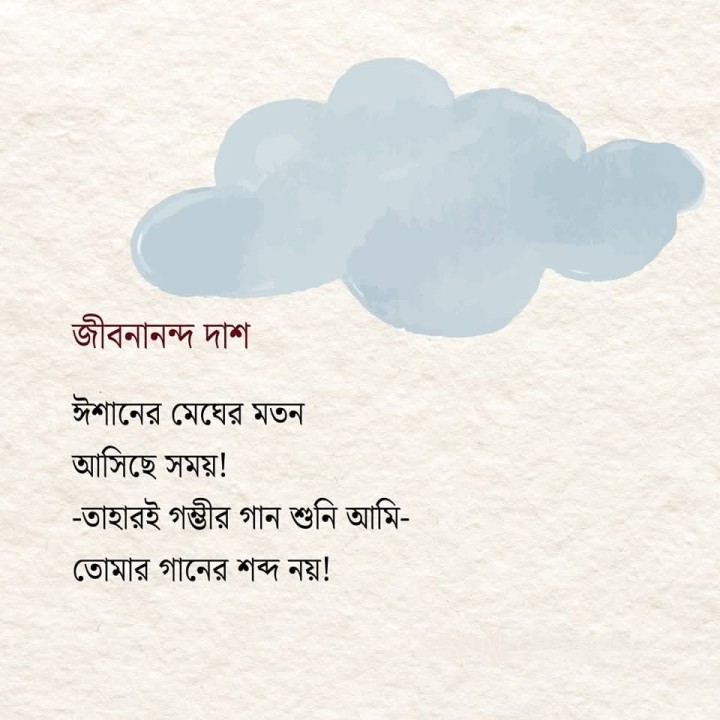 জীবনানন্দ দাশ
ঈশানের মেঘের মতন
আসিছে সময়!
-তাহারই গম্ভীর গান শুনি আমি-
তোমার গানের শব্দ নয়!